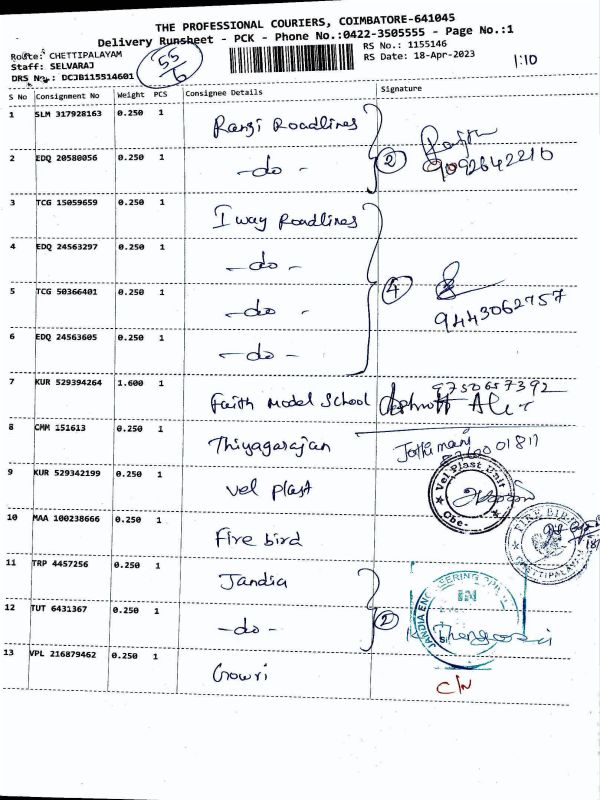 THE PROFESSIONAL COURIERS, COIMBATORE-641045
Delivery Runsheet - PCK - Phone No.:0422-3505555 - Page No.:1
Route: CHETTIPALAYAM
Staff: SELVARAJ
DRS No.: DCJB115514601
55/6
RS No.: 1155146
RS Date: 18-Apr-2023
1:10
S No Consignment No Weight PCS Consignee Details Signature
1 SLM 317928163 0.250 1 Rangi Roadlines
2 EDQ 20580056 0.250 1 -do- 2 9092642210
3 TCG 15059659 0.250 1 I way Roadlines
4 EDQ 24563297 0.250 1 -do-
5 TCG 50366401 0.250 1 -do- 4 9443062757
6 EDQ 24563605 0.250 1 -do-
7 KUR 529394264 1.600 1 Faith Model School 9750657392
8 CMM 151613 0.250 1 Thiyagarajan Jothimani
9 KUR 529342199 0.250 1 Vel plast Vel Plast Unit
10 MAA 100238666 0.250 1 Fire bird FIRE BIRD CHETTIPALAYAM
11 TRP 4457256 0.250 1 Jandia
12 TUT 6431367 0.250 1 -do- 2 JANDIA ENGINEERING
13 VPL 216879462 0.250 1 Gowri C/N